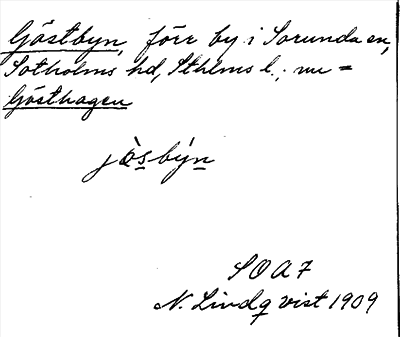 Göstbyn, förr by i Sorunda sn,
Sotholms hd, Sthlms l.; nu =
Gösthagen
jòsbýn
SOAF
N. Lindqvist 1909